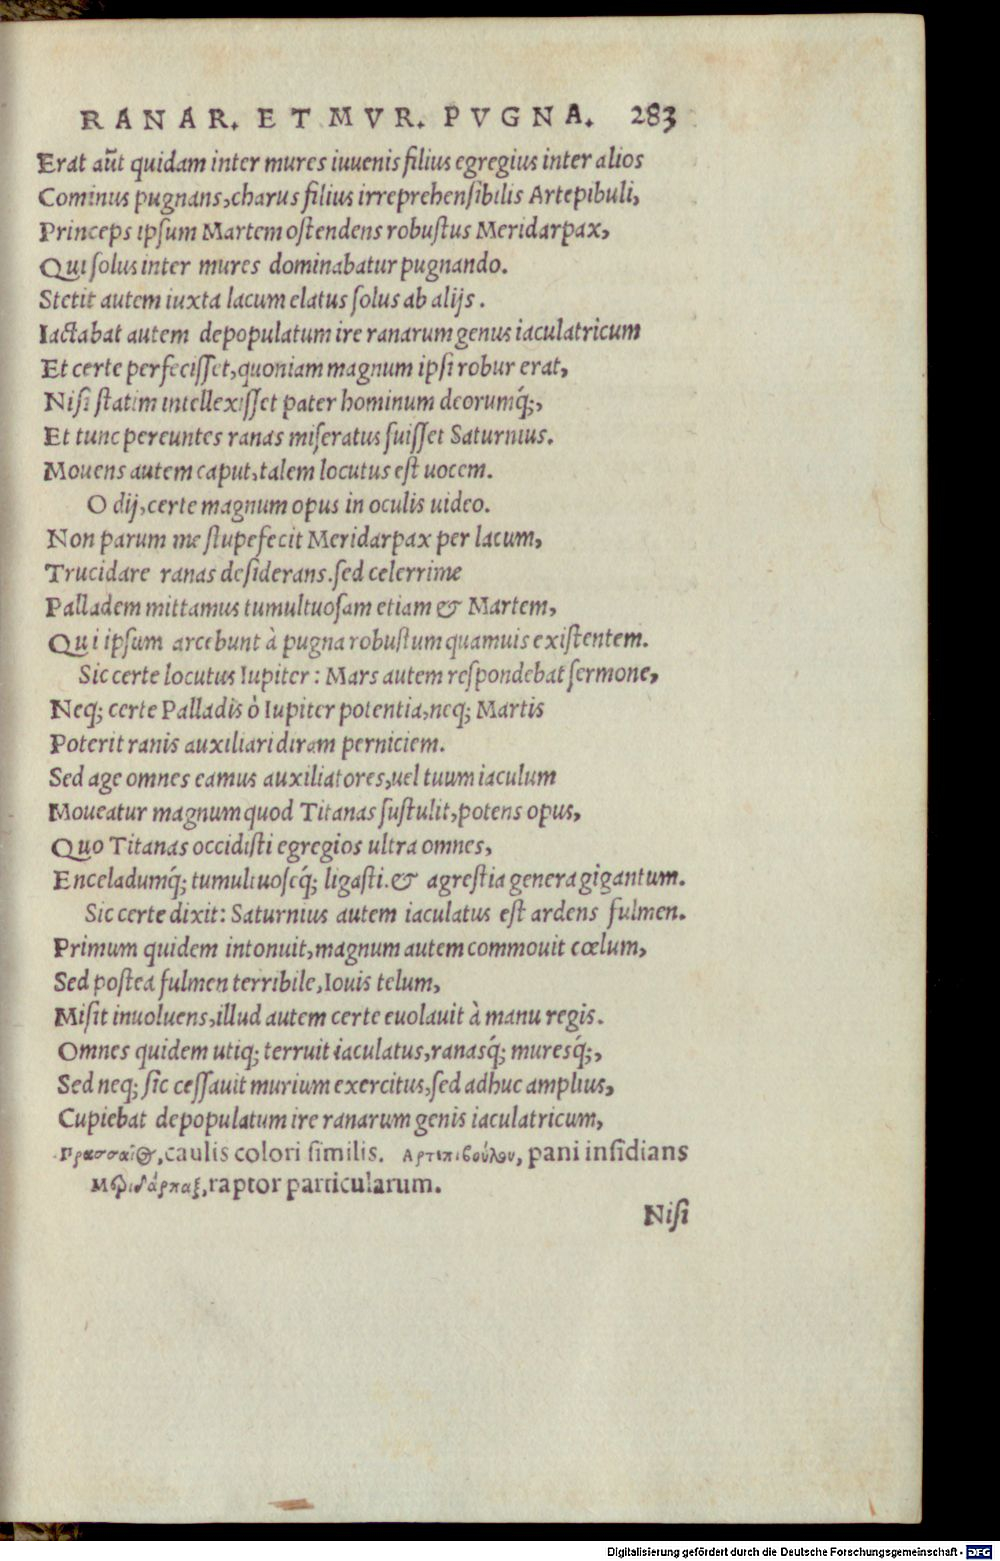 RANAR. ET MVR. PVGNA. 283
Erat aut̃ quidam inter mures iuuenis filius egregius inter alios
Cominus pugnans, charus filius irreprehensibilis Artepibuli,
Princeps ipsum Martem ostendens robustus Meridarpax,
Qui solus inter mures dominabatur pugnando.
Stetit autem iuxta lacum elatus solus ab alijs.
Iactabat autem depopulatum ire ranarum genus iaculatricum
Et certe perfecisset, quoniam magnum ipsi robur erat,
Nisi statim intellexisset pater hominum deorumq́;,
Et tunc pereuntes ranas miseratus fuisset Saturnius.
Mouens autem caput, talem locutus est uocem.
O dij, certe magnum opus in oculis uideo.
Non parum me stupefecit Meridarpax per lacum,
Trucidare ranas desiderans. sed celerrime
Palladem mittamus tumultuosam etiam & Martem,
Qui ipsum arcebunt à pugna robustum quamuis existentem.
Sic certe locutus Iupiter: Mars autem respondebat sermone,
Neq; certe Palladis ô Iupiter potentia, neq; Martis
Poterit ranis auxiliari diram perniciem.
Sed age omnes eamus auxiliatores, uel tuum iaculum
Moueatur magnum quod Titanas sustulit, potens opus,
Quo Titanas occidisti egregios ultra omnes,
Enceladumq́; tumultuoseq́; ligasti. & agrestia genera gigantum.
Sic certe dixit: Saturnius autem iaculatus est ardens fulmen.
Primum quidem intonuit, magnum autem commouit cœlum,
Sed postea fulmen terribile, Iouis telum,
Misit inuoluens, illud autem certe euolauit à manu regis.
Omnes quidem utiq; terruit iaculatus, ranasq́; muresq́;,
Sed neq; sic cessauit murium exercitus, sed adhuc amplius,
Cupiebat depopulatum ire ranarum genis iaculatricum,
Πρασσαῖος, caulis colori similis. Αρτεπιβούλου, pani insidians
Μεριδάρπαξ, raptor particularum.
Nisi
Digitalisierung gefördert durch die Deutsche Forschungsgemeinschaft - DFG